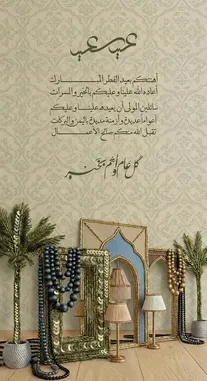 عيد سعيد
أهنئكم بعيد الفطر المبـــارك
أعاده الله علينا وعليكم بالخير والمسرات
سائلين المولى أن يعيده علينـا وعليكم
أعواماً عديدة وأزمنة مديدة باليمن والبركات
تقبل الله منكم صالح الأعمـــال
كل عام وأنتم بخير